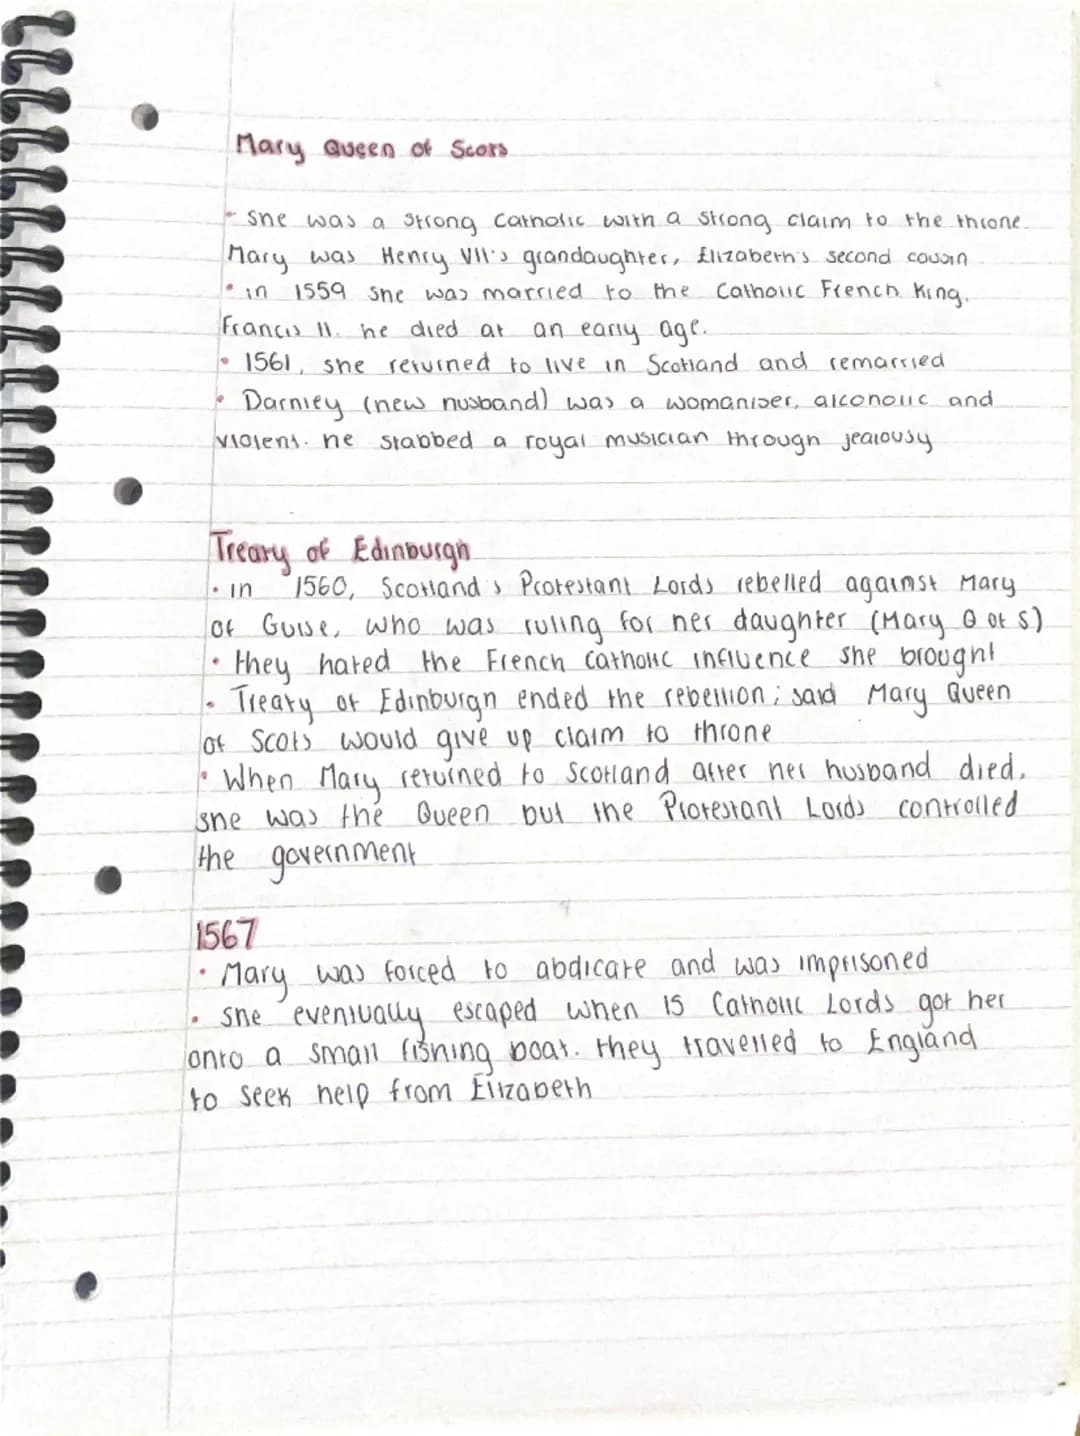 Mary Queen of Scots
- she was a strong Catholic with a strong claim to the throne.
Mary was Henry VII's grandaughter, Elizabeth's second cousin
• in 1559 she was married to the Catholic French King,
Francis II. he died at an early age.
• 1561, she returned to live in Scotland and remarried
• Darnley (new husband) was a womaniser, alcoholic and
violent. he stabbed a royal musician through jealousy
Treaty of Edinburgh
• in 1560, Scotland's Protestant Lords rebelled against Mary
of Guise, who was ruling for her daughter (Mary Q of S)
• they hated the French Catholic influence she brought
• Treaty of Edinburgh ended the rebellion; said Mary Queen
of Scots would give up claim to throne
• When Mary returned to Scotland after her husband died,
she was the Queen but the Protestant Lords controlled
the government
1567
• Mary was forced to abdicate and was imprisoned
• she eventually escaped when 15 Catholic Lords got her
onto a small fishing boat. they travelled to England
to seek help from Elizabeth